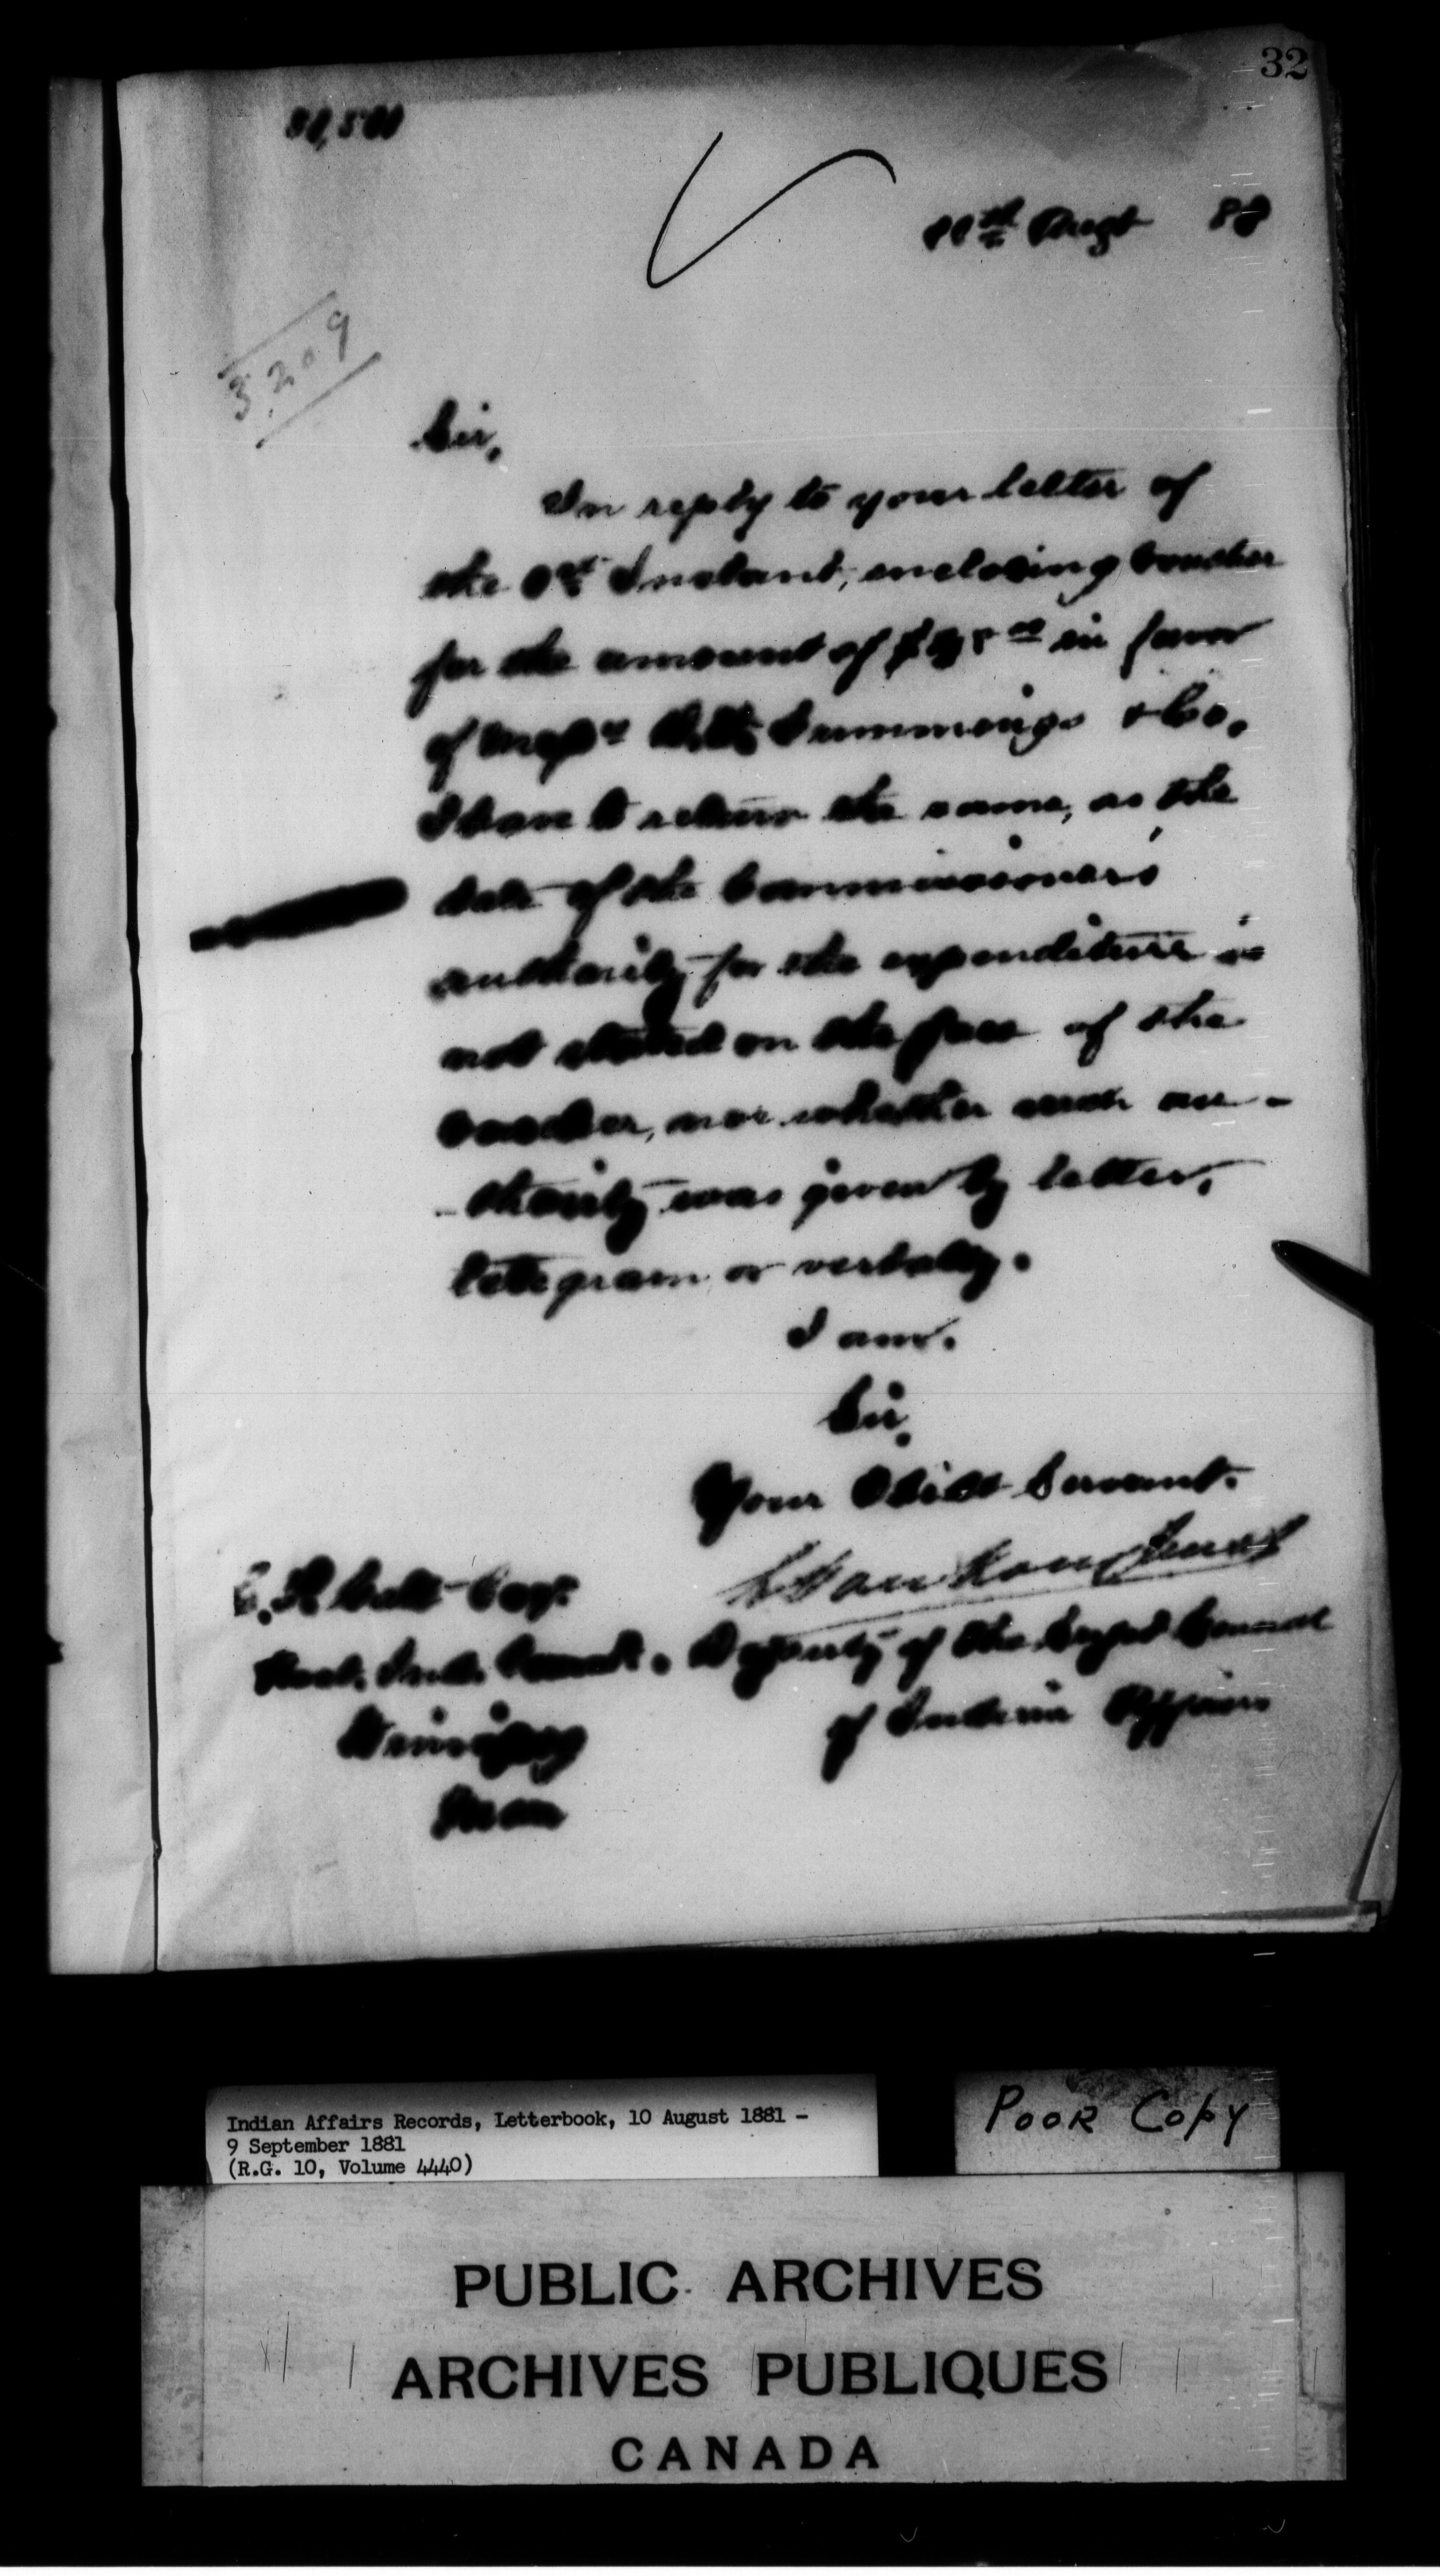 32
11th Augt 8
3,209
Sir,
In reply to your letter of
the Instant, enclosing voucher
for the amount of $ in favor
of Messrs Cummings & Co,
I have to return the same, as the
date of the Commissioner's
authority for the expenditure is
not stated on the face of the
voucher, nor whether such au-
-thority was given by letter,
telegram or verbally.
I am.
Sir,
Your Obedt Servant.
L Vankoughnet
Deputy of the Supt General
of Indian Affairs
Galt Esqr
Winnipeg
Man
Indian Affairs Records, Letterbook, 10 August 1881 -
9 September 1881
(R.G. 10, Volume 4440)
POOR COPY
PUBLIC ARCHIVES
ARCHIVES PUBLIQUES
CANADA